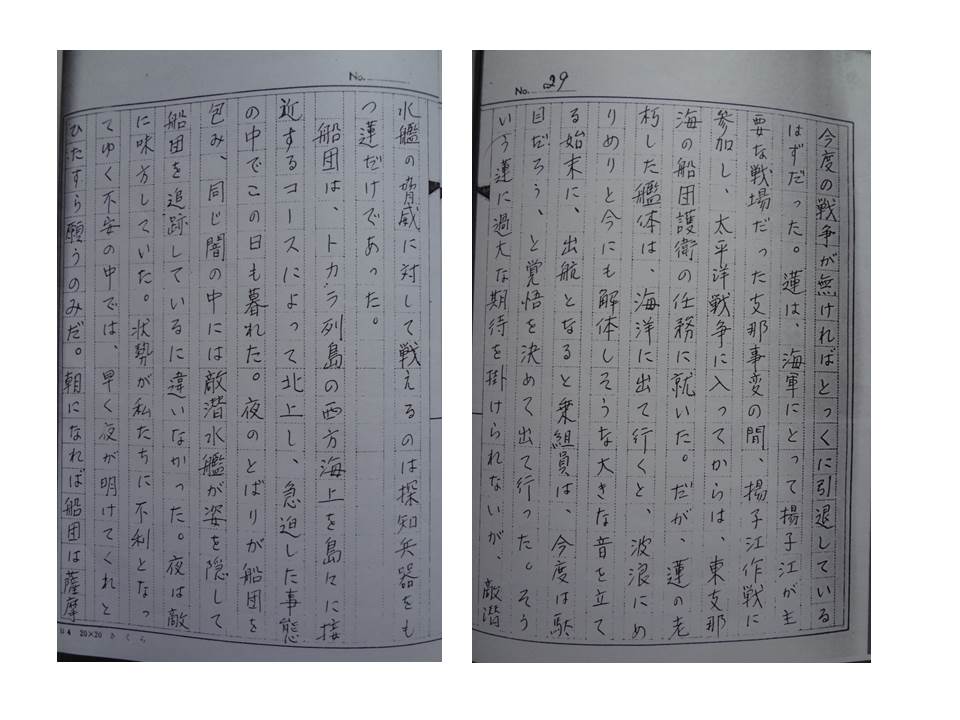 No. 29
今度の戦争が無ければとっくに引退している
はずだった。蓮は、海軍にとって揚子江が主
要な戦場だった支那事変の間、揚子江作戦に
参加し、太平洋戦争に入ってからは、東支那
海の船団護衛の任務に就いた。だが、蓮の老
朽した艦体は、海洋に出て行くと、波浪にめ
りめりと今にも解体しそうな大きな音を立て
る始末に、出航となると乗組員は、今度は駄
目だろう、と覚悟を決めて出て行った。そう
いう蓮に過大な期待を掛けられないが、敵潜
No.
水艦の脅威に対して戦えるのは探知兵器をも
つ蓮だけであった。
船団は、トカラ列島の西方海上を島々に接
近するコースによって北上し、急迫した事態
の中でこの日も暮れた。夜のとばりが船団を
包み、同じ闇の中には敵潜水艦が姿を隠して
船団を追跡しているに違いなかった。夜は敵
に味方していた。状勢が私たちに不利となっ
てゆく不安の中では、早く夜が明けてくれと
ひたすら願うのみだ。朝になれば船団は薩摩
4 20×20 さくら